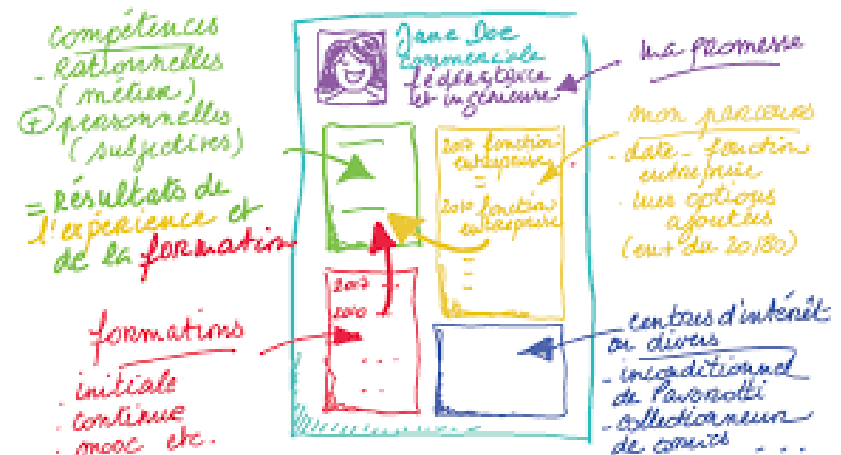 compétences
- Rationnelles
(métier)
+ personnelles
(subjectives)
= Résultats de
l'expérience et
de la formation
formations
. initiale
. continue
. mooc etc.
Jane Doe
commerciale
fédératrice
et ingénieure
2017 fonction
entreprise
2010 fonction
entreprise
2017
2010
ma promesse
mon parcours
- date - fonction
entreprise
ajoutées
du 20/80)
centres d'intérêt
ou divers
- inconditionnel
de Pavarotti
- collectionneur
de comics . . .